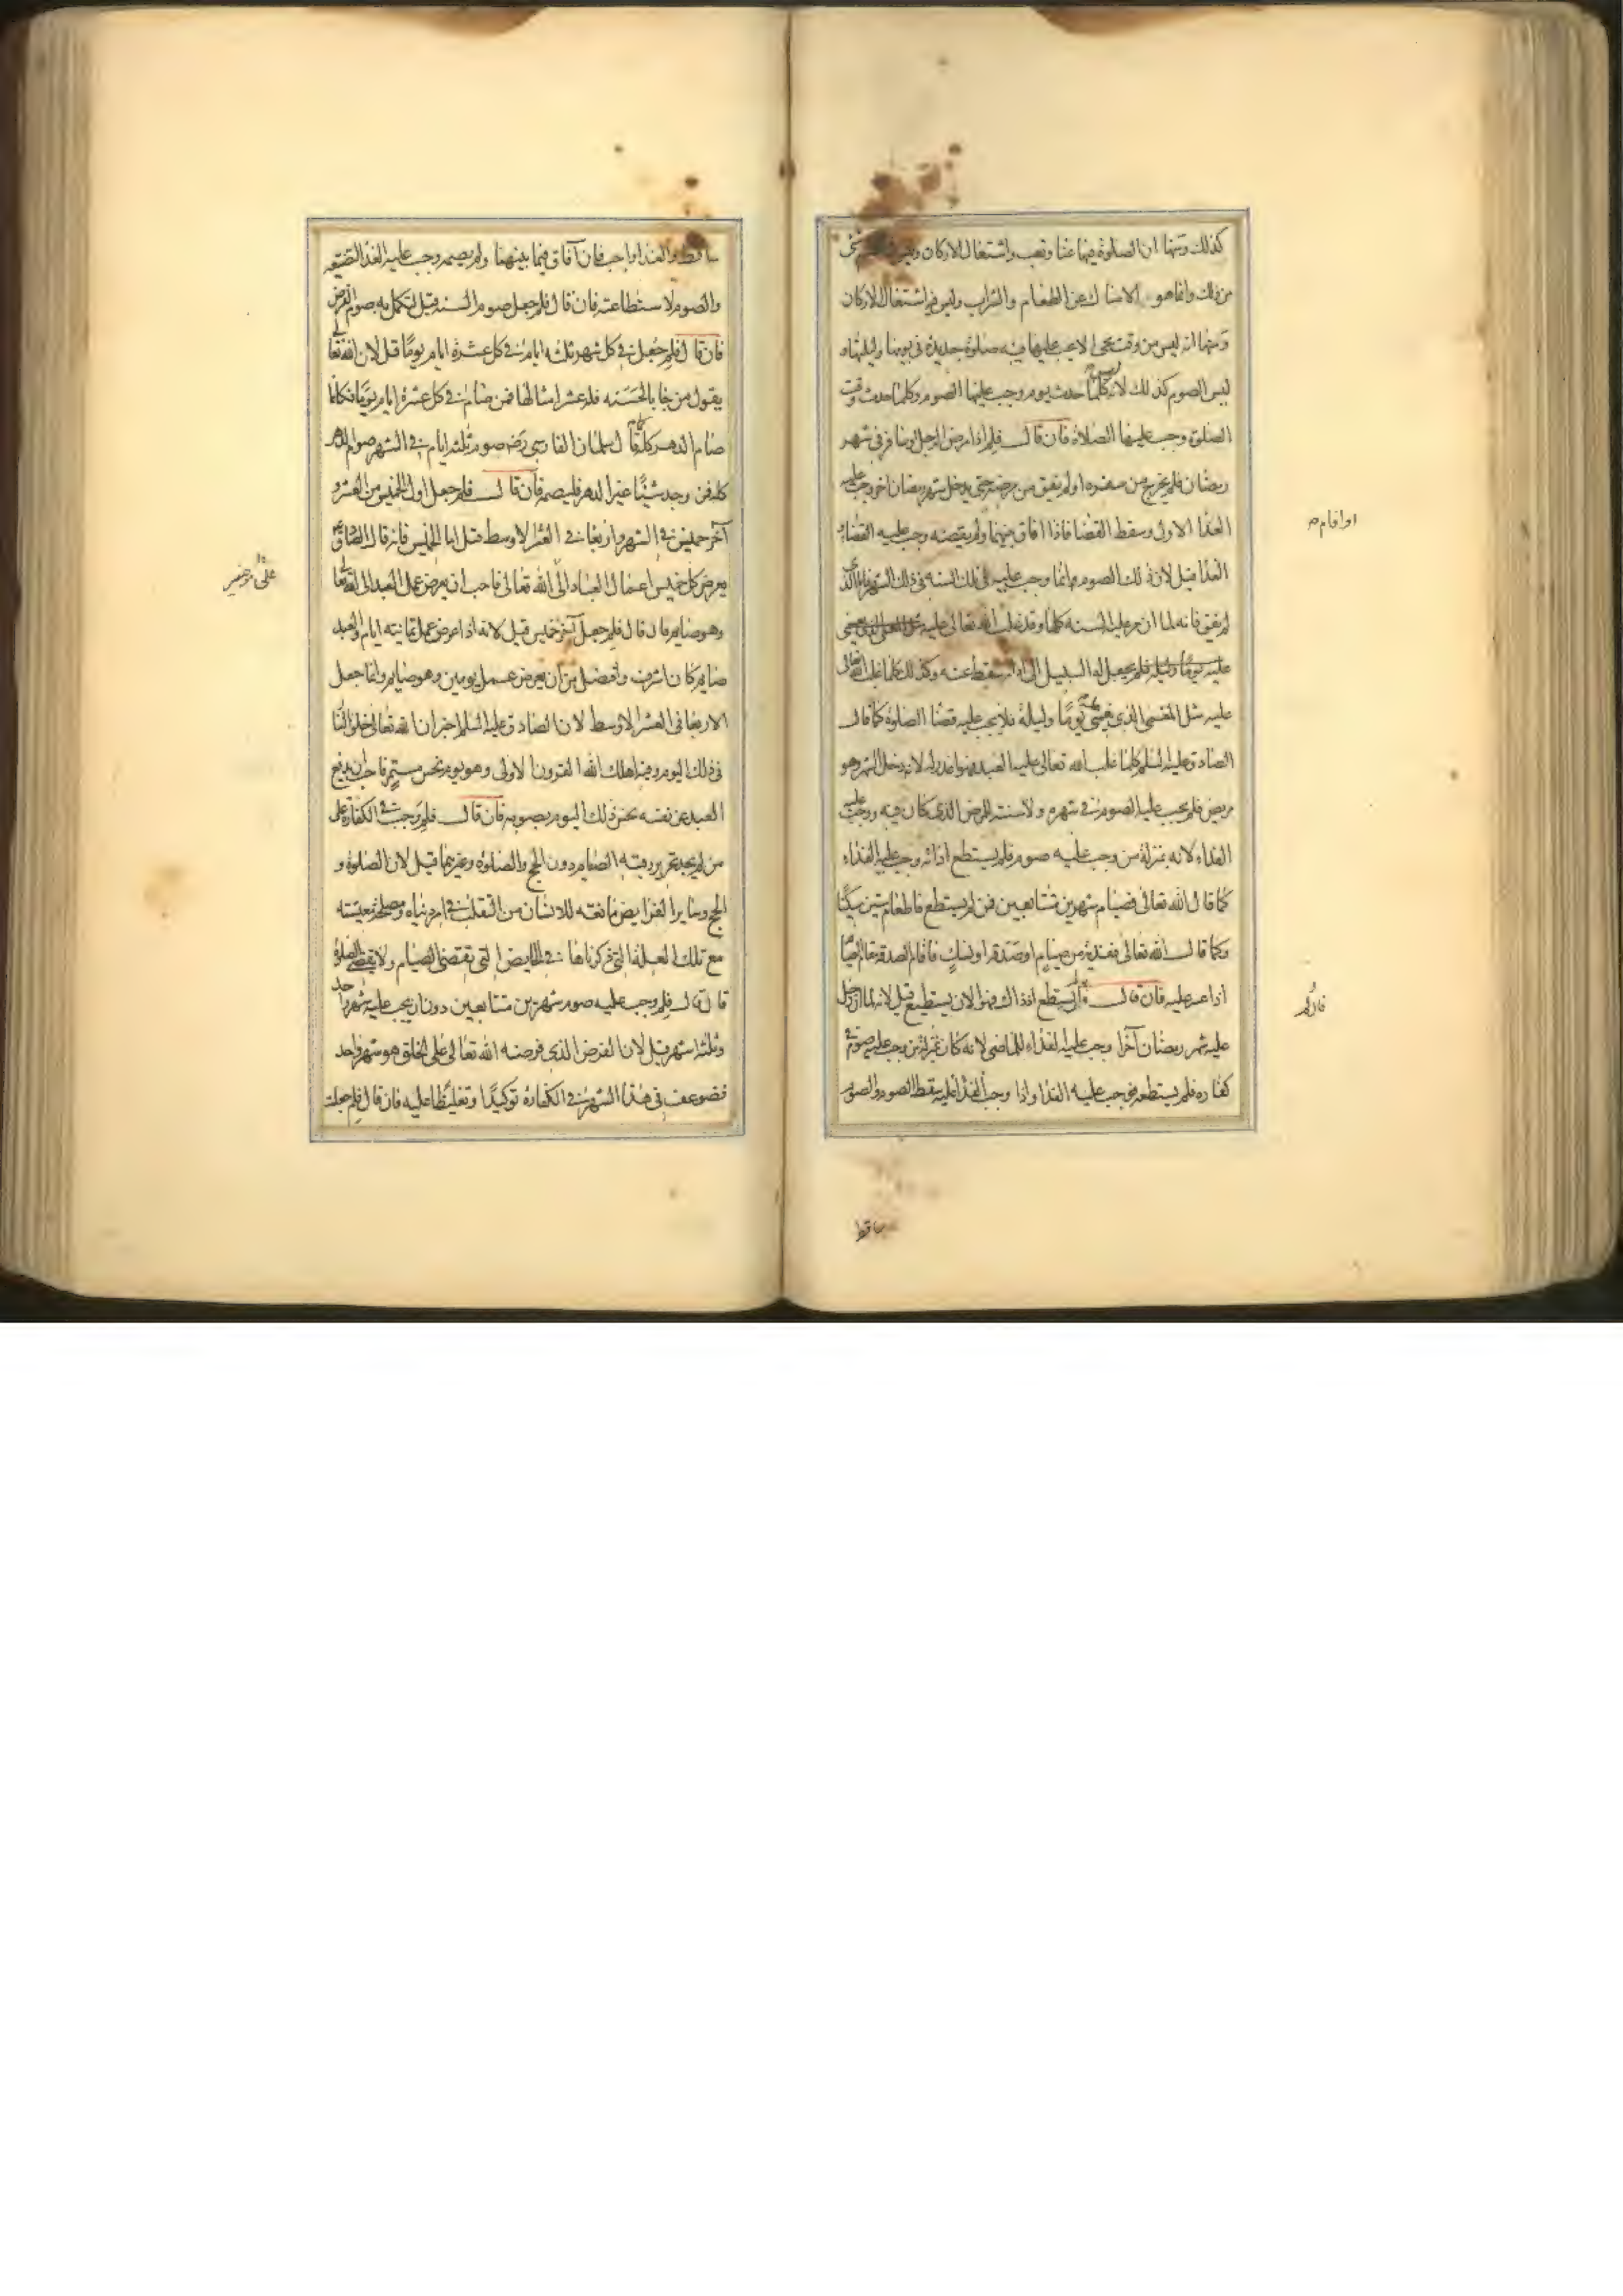 كذلك ومنها ان الصلوة فيها عنا وتعب واشتغال الاركان وليس في الصوم شئ
من ذلك وانما هو الامساك عن الطعام والشراب وليس فيه اشتغال الاركان
ومنها انه ليس من وقت يجئ الا يجب عليها فيه صلوة جديدة فى يومها وليلتها و
ليس الصوم كذلك لانه ليس كلما حدث يوم وجب عليها الصوم وكلما حدث وقت
الصلوة وجب عليها الصلاة فان قال فلم اذا مرض الرجل او سافر فى شهر
رمضان فلم يخرج من سفره او لم يفق من مرضه حتى يدخل شهر رمضان اخر وجب عليه
الفدا الاولى وسقط القضا فاذا افاق بينهما ولم يقضه وجب عليه القضاء
او اقام م
الفدا قيل لان ذلك الصوم وانما وجب عليه فى تلك السنه فى ذلك الشهر فاما الذى
لم يفق فانه لما ان مر عليه السنه كلها وقد غلب الله تعالى عليه مثل المغمى الذى يغمى
عليه يوما وليلة فلم يجعل له السبيل الى ادائه سقط عنه وكذلك كلما غلب الله تعالى
عليه مثل المغمى الذى يغمى عليه يومًا وليلة فلا يجب عليه قضا الصلوة كما قال
الصادق عليه السلم كلما غلب الله تعالى عليه العبد فهو اعذر له لانه دخل الشهر وهو
مريض فلم يجب عليه الصوم فى شهره ولا سنته للمرض الذى كان فيه ووجب عليه
الفداء لانه بمنزلة من وجب عليه صوم فلم يستطع ادائه وجب عليه الفداء
كما قال الله تعالى فصيام شهرين متتابعين فمن لم يستطع فاطعام ستين مسكينًا
وكما قال الله تعالى ففدية من صيام او صدقة او نسك فاقام الصدقة مقام الصيام
اذا عسر عليه فان قال فان لم يستطع اذ ذاك فهو الان يستطيع قيل لانه لما ان دخل
فان لم
عليه شهر رمضان آخر وجب عليه الفداء للماضى لانه كان بمنزلة من وجب عليه صوم فى
كفاره فلم يستطعه فوجب عليه الفدا واذا وجب الفدا عليه سقط الصوم والصوم
ساقط
ساقط والفدا واجب فان آفاق فيما بينهما ولم يصمه وجب عليه الفدا لتضييعه
والصوم لاستطاعته فان قال فلم جعل صوم السنه قيل لتكمل به صوم الفرض
فان قال فلم جعل فى كل شهر ثلثه ايام فى كل عشرة ايام يومًا قيل لان الله تعالى
يقول من جا بالحسنه فله عشر امثالها فمن صام فى كل عشرة ايام يومًا فكانما
صام الدهر كله كما قال سلمان الفارسى رض صوم ثلثه ايام فى الشهر صوم الدهر
كله فمن وجد شيئًا غير الدهر فليصمه فان قال فلم جعل اول الخميس من العشر و
آخر خميس فى الشهر واربعا فى العشر الاوسط قيل اما الخميس فانه قال الصادق
يعرض كل خميس اعمال العباد الى الله تعالى فاحب ان يعرض عمل العبد الى الله تعالى
وهو صايم فان قال فلم جعل آخر خميس قيل لانه اذا عرض عمل ثمانيه ايام والعبد
صايم كان اشرف وافضل من ان يعرض عمل يومين وهو صايم وانما جعل
الاربعا فى العشر الاوسط لان الصادق عليه السلم اخبر ان الله تعالى خلق النار
فى ذلك اليوم وفيه اهلك الله القرون الاولى وهو يوم نحس مستمر فاحب ان يدفع
العبد عن نفسه نحس ذلك اليوم بصومه فان قال فلم وجب فى الكفارة على
من لم يجد تحرير رقبه الصيام دون الحج والصلوة وغيرهما قيل لان الصلوة و
الحج وساير الفرايض مانعه للانسان من التقلب فى امر دنياه ومصلحة معيشته
مع تلك العلة التى ذكرناها فى الحايض التى تقضى الصيام ولا تقضى الصلوة
قال قال فلم وجب عليه صوم شهرين متتابعين دون ان يجب عليه شهر واحد
وثلثه اشهر قيل لان الفرض الذى فرضه الله تعالى على الخلق هو شهر واحد
فضوعف فى هذا الشهر فى الكفارة توكيدًا وتغليظا عليه فان قال فلم جعلت